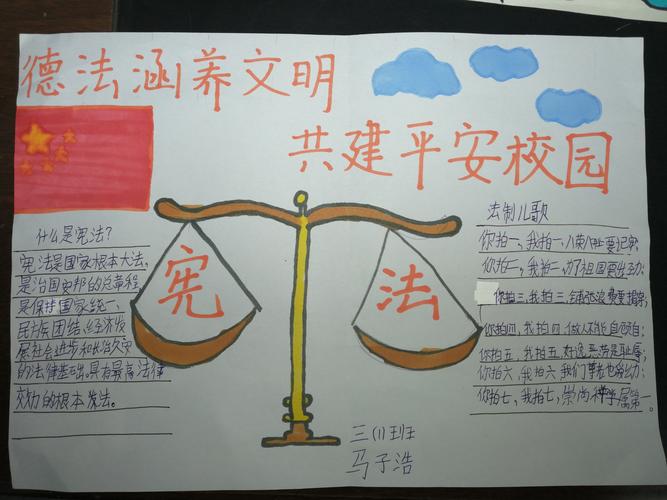 德法涵养文明
共建平安校园
什么是宪法?
宪法是国家根本大法,
是治国安邦的总章程,
是保持国家统一、
民族团结、经济发
展社会进步和长治久安
的法律基础。具有最高法律
效力的根本发法。
宪
法
法制儿歌
你拍一,我拍一,八荣八耻要记牢;
你拍二,我拍二,为了祖国要出力;
你拍三,我拍三,
你拍四,我拍四,做人
你拍五,我拍五,好逸恶劳是耻辱;
你拍六,我拍六,我们
你拍七,我拍七,崇尚科学属第一。
三(1)班
马子浩